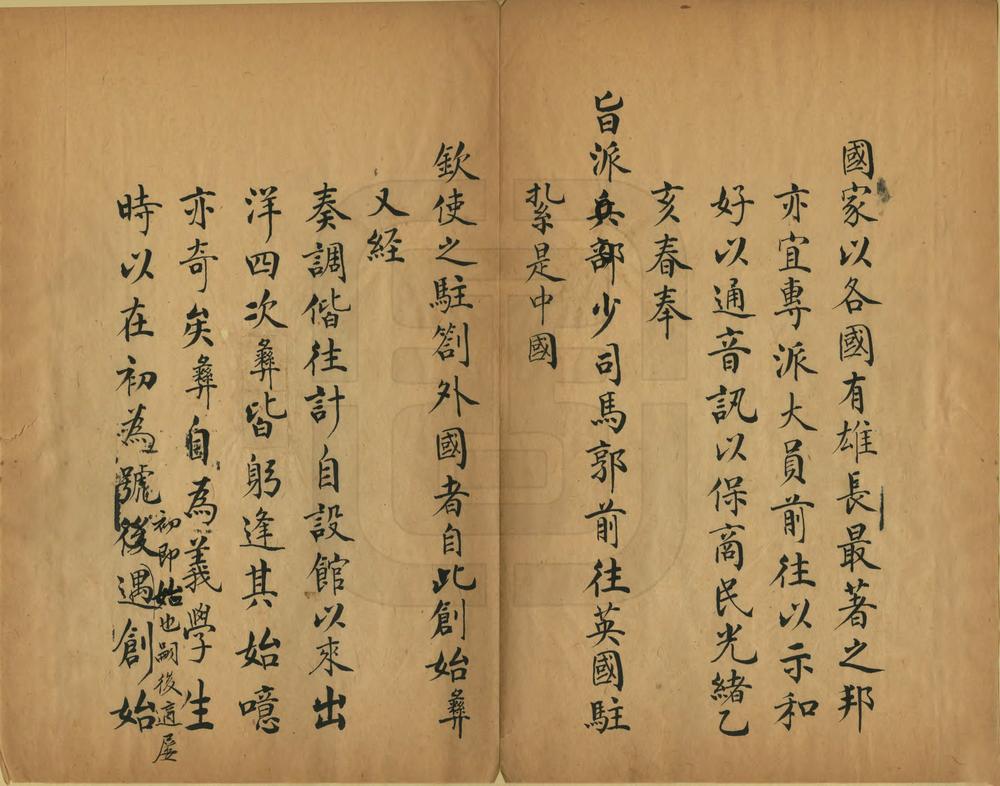 國家以各國有雄長最著之邦
亦宜專派大員前往以示和
好以通音訊以保商民光緒乙
亥春奉
旨派兵部少司馬郭前往英國駐
紮是中國
欽使之駐劄外國者自此創始彝
又経
奏調偕往計自設館以來出
洋四次彝皆躬逢其始噫
亦奇矣彝自為義學生
時以在初為號後遇創始
初即始也嗣後適屡